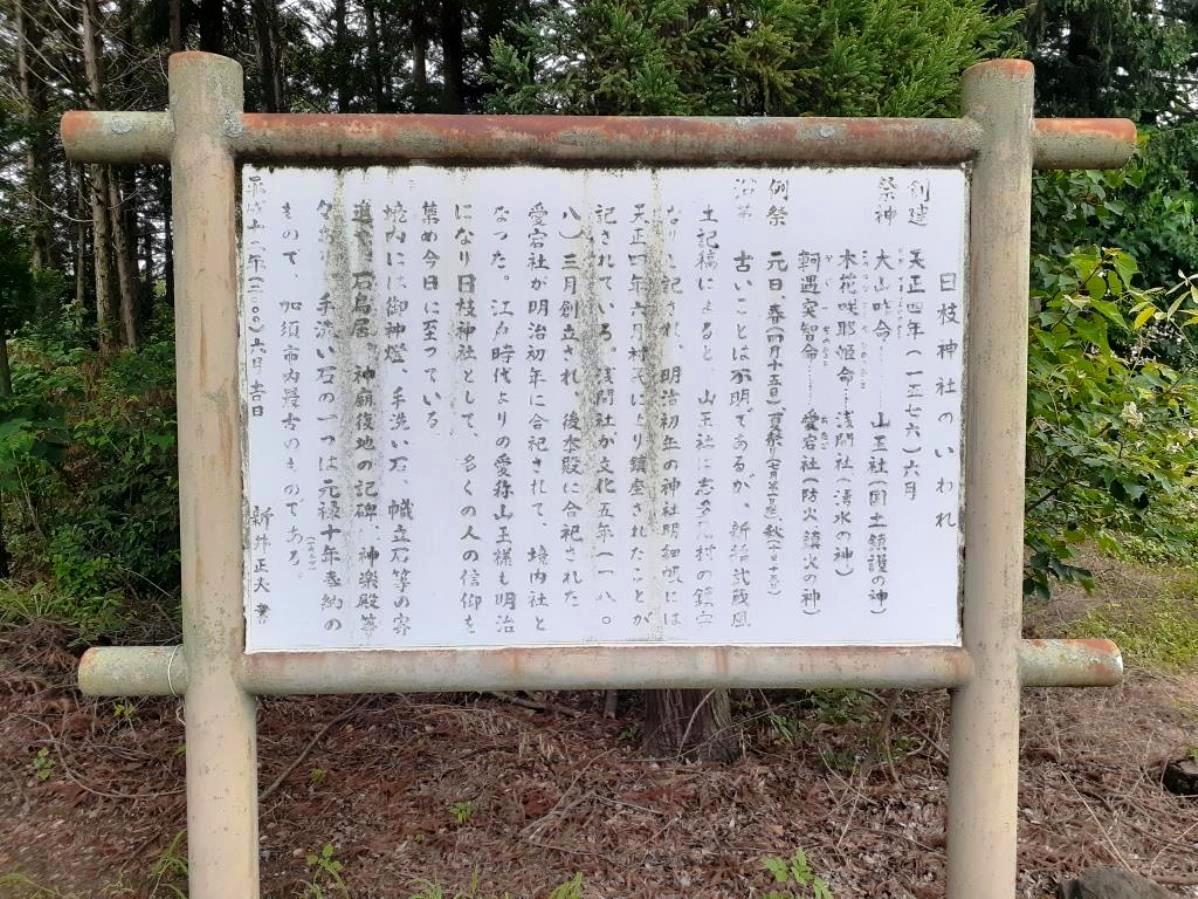 日枝神社のいわれ
創建 天正四年(一五七六)六月
祭神 大山咋命……山王社(国土鎮護の神)
木花咲耶姫命…浅間社(湧水の神)
軻遇突智命……愛宕社(防火鎮火の神)
例祭 元日、春(四月十五日)、夏祭り 秋
古いことは不明であるが、新編武蔵風
土記稿によると、山王社は志多見村の鎮守
なりと記され、明治初年の神社明細帳には
天正四年六月村民により鎮座されたことが
記されている。浅間社が文化五年(一八〇
八)三月創立され、後本殿に合祀された
愛宕社が明治初年に合祀されて、境内社と
なった。江戸時代よりの愛称山王様も明治
になり日枝神社として、多くの人の信仰を
集め今日に至っている。
境内には御神燈、手洗い石、幟立石等の寄
進や、石鳥居、神廟復地の記碑、神楽殿等
々あり、手洗い石の一つは元禄十年奉納の
もので、加須市内最古のものである。
平成十二年(二〇〇〇)六月吉日 新井正夫 書